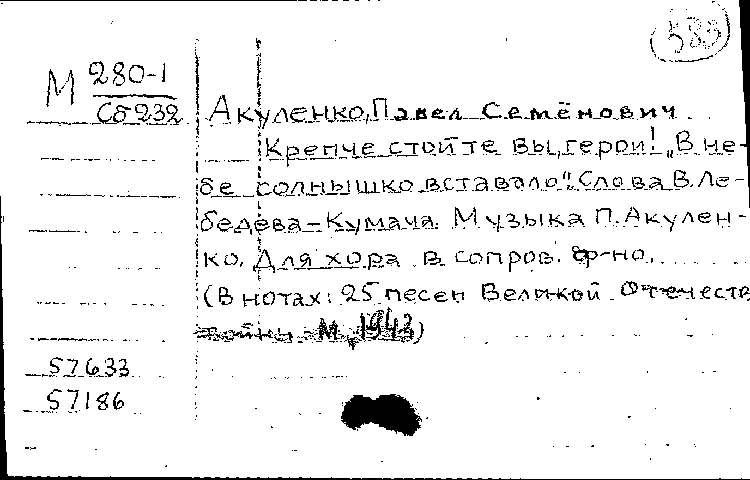 583
М 280-1
Сб 232
Акуленко, Павел Семёнович
Крепче стойте вы, герои! „В не-
бе солнышко вставало". Слова В. Ле-
бедева-Кумача. Музыка П. Акулен-
ко. Для хора в сопров. ф-но.
(В нотах: 25 песен Великой Отечеств
войны. М, 1943)
57633
57186